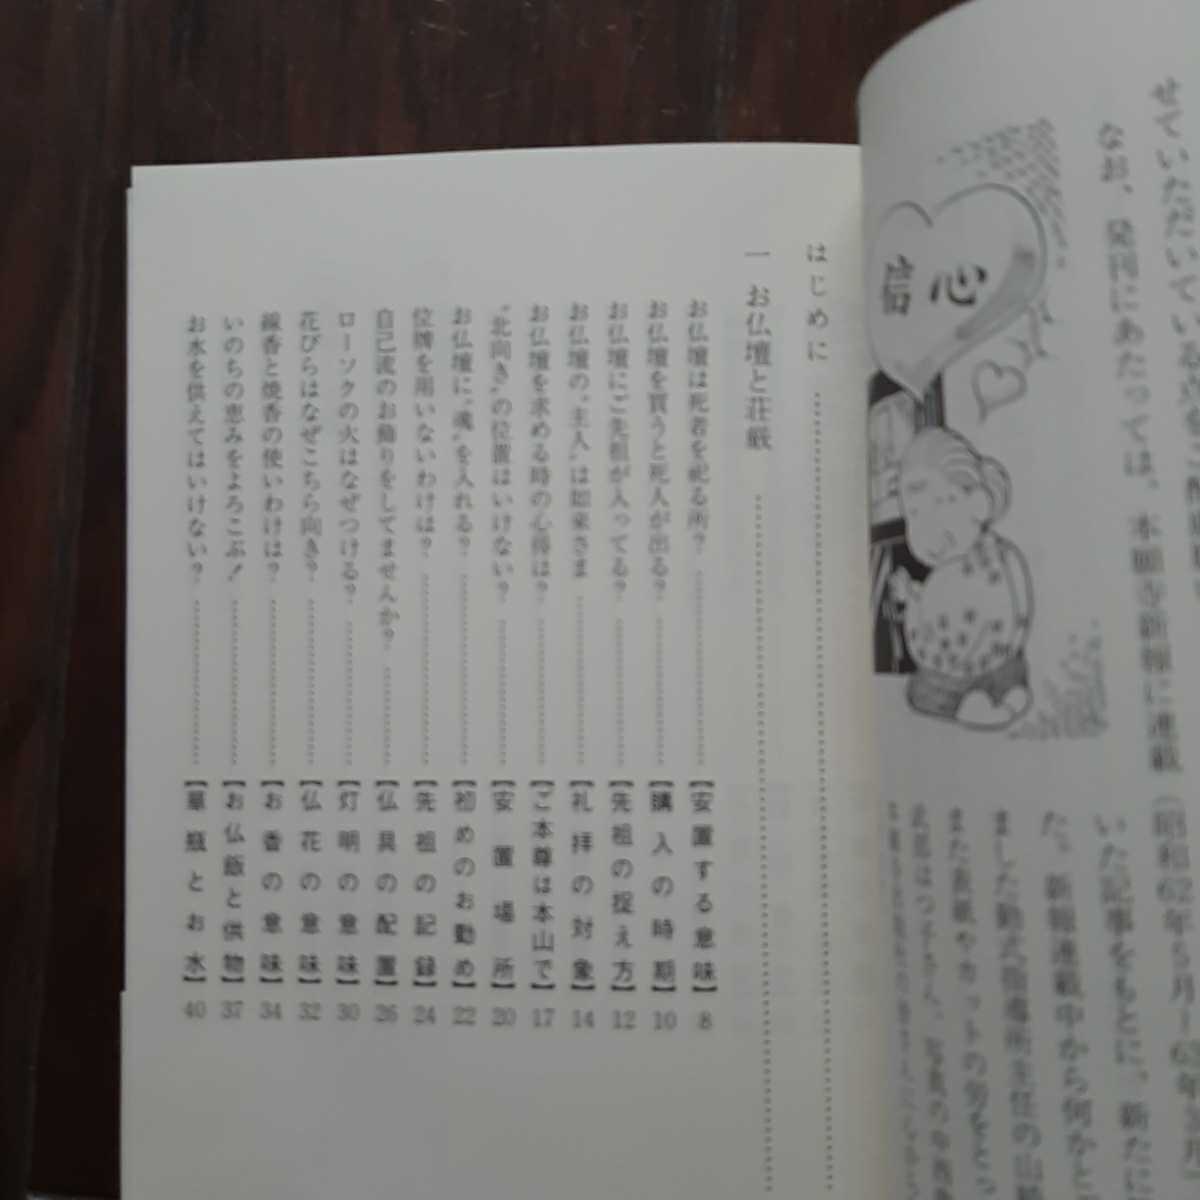 せていただいている
なお、発刊にあたっては、本願寺新報に連載
（昭和62年5月―63年
いた記事をもとに、新たに
た。新報連載中から何かと
ました勤式指導所主任の山
また表紙やカットの
信心
はじめに
一 お仏壇と荘厳
お仏壇は死者を祀る所？【安置する意味】8
お仏壇を買うと死人が出る？【購入の時期】10
お仏壇にご先祖が入ってる？【先祖の捉え方】12
お仏壇の〝主人〟は如来さま【礼拝の対象】14
お仏壇を求める時の心得は？【ご本尊は本山で】17
〝北向き〟の位置はいけない？【安置場所】20
お仏壇に〝魂〟を入れる？【初めのお勤め】22
位牌を用いないわけは？【先祖の記録】24
自己流のお飾りをしてませんか？【仏具の配置】26
ローソクの火はなぜつける？【灯明の意味】30
花びらはなぜこちら向き？【仏花の意味】32
線香と焼香の使いわけは？【お香の意味】34
いのちの恵みをよろこぶ！【お仏飯と供物】37
お水を供えてはいけない？【華瓶とお水】40